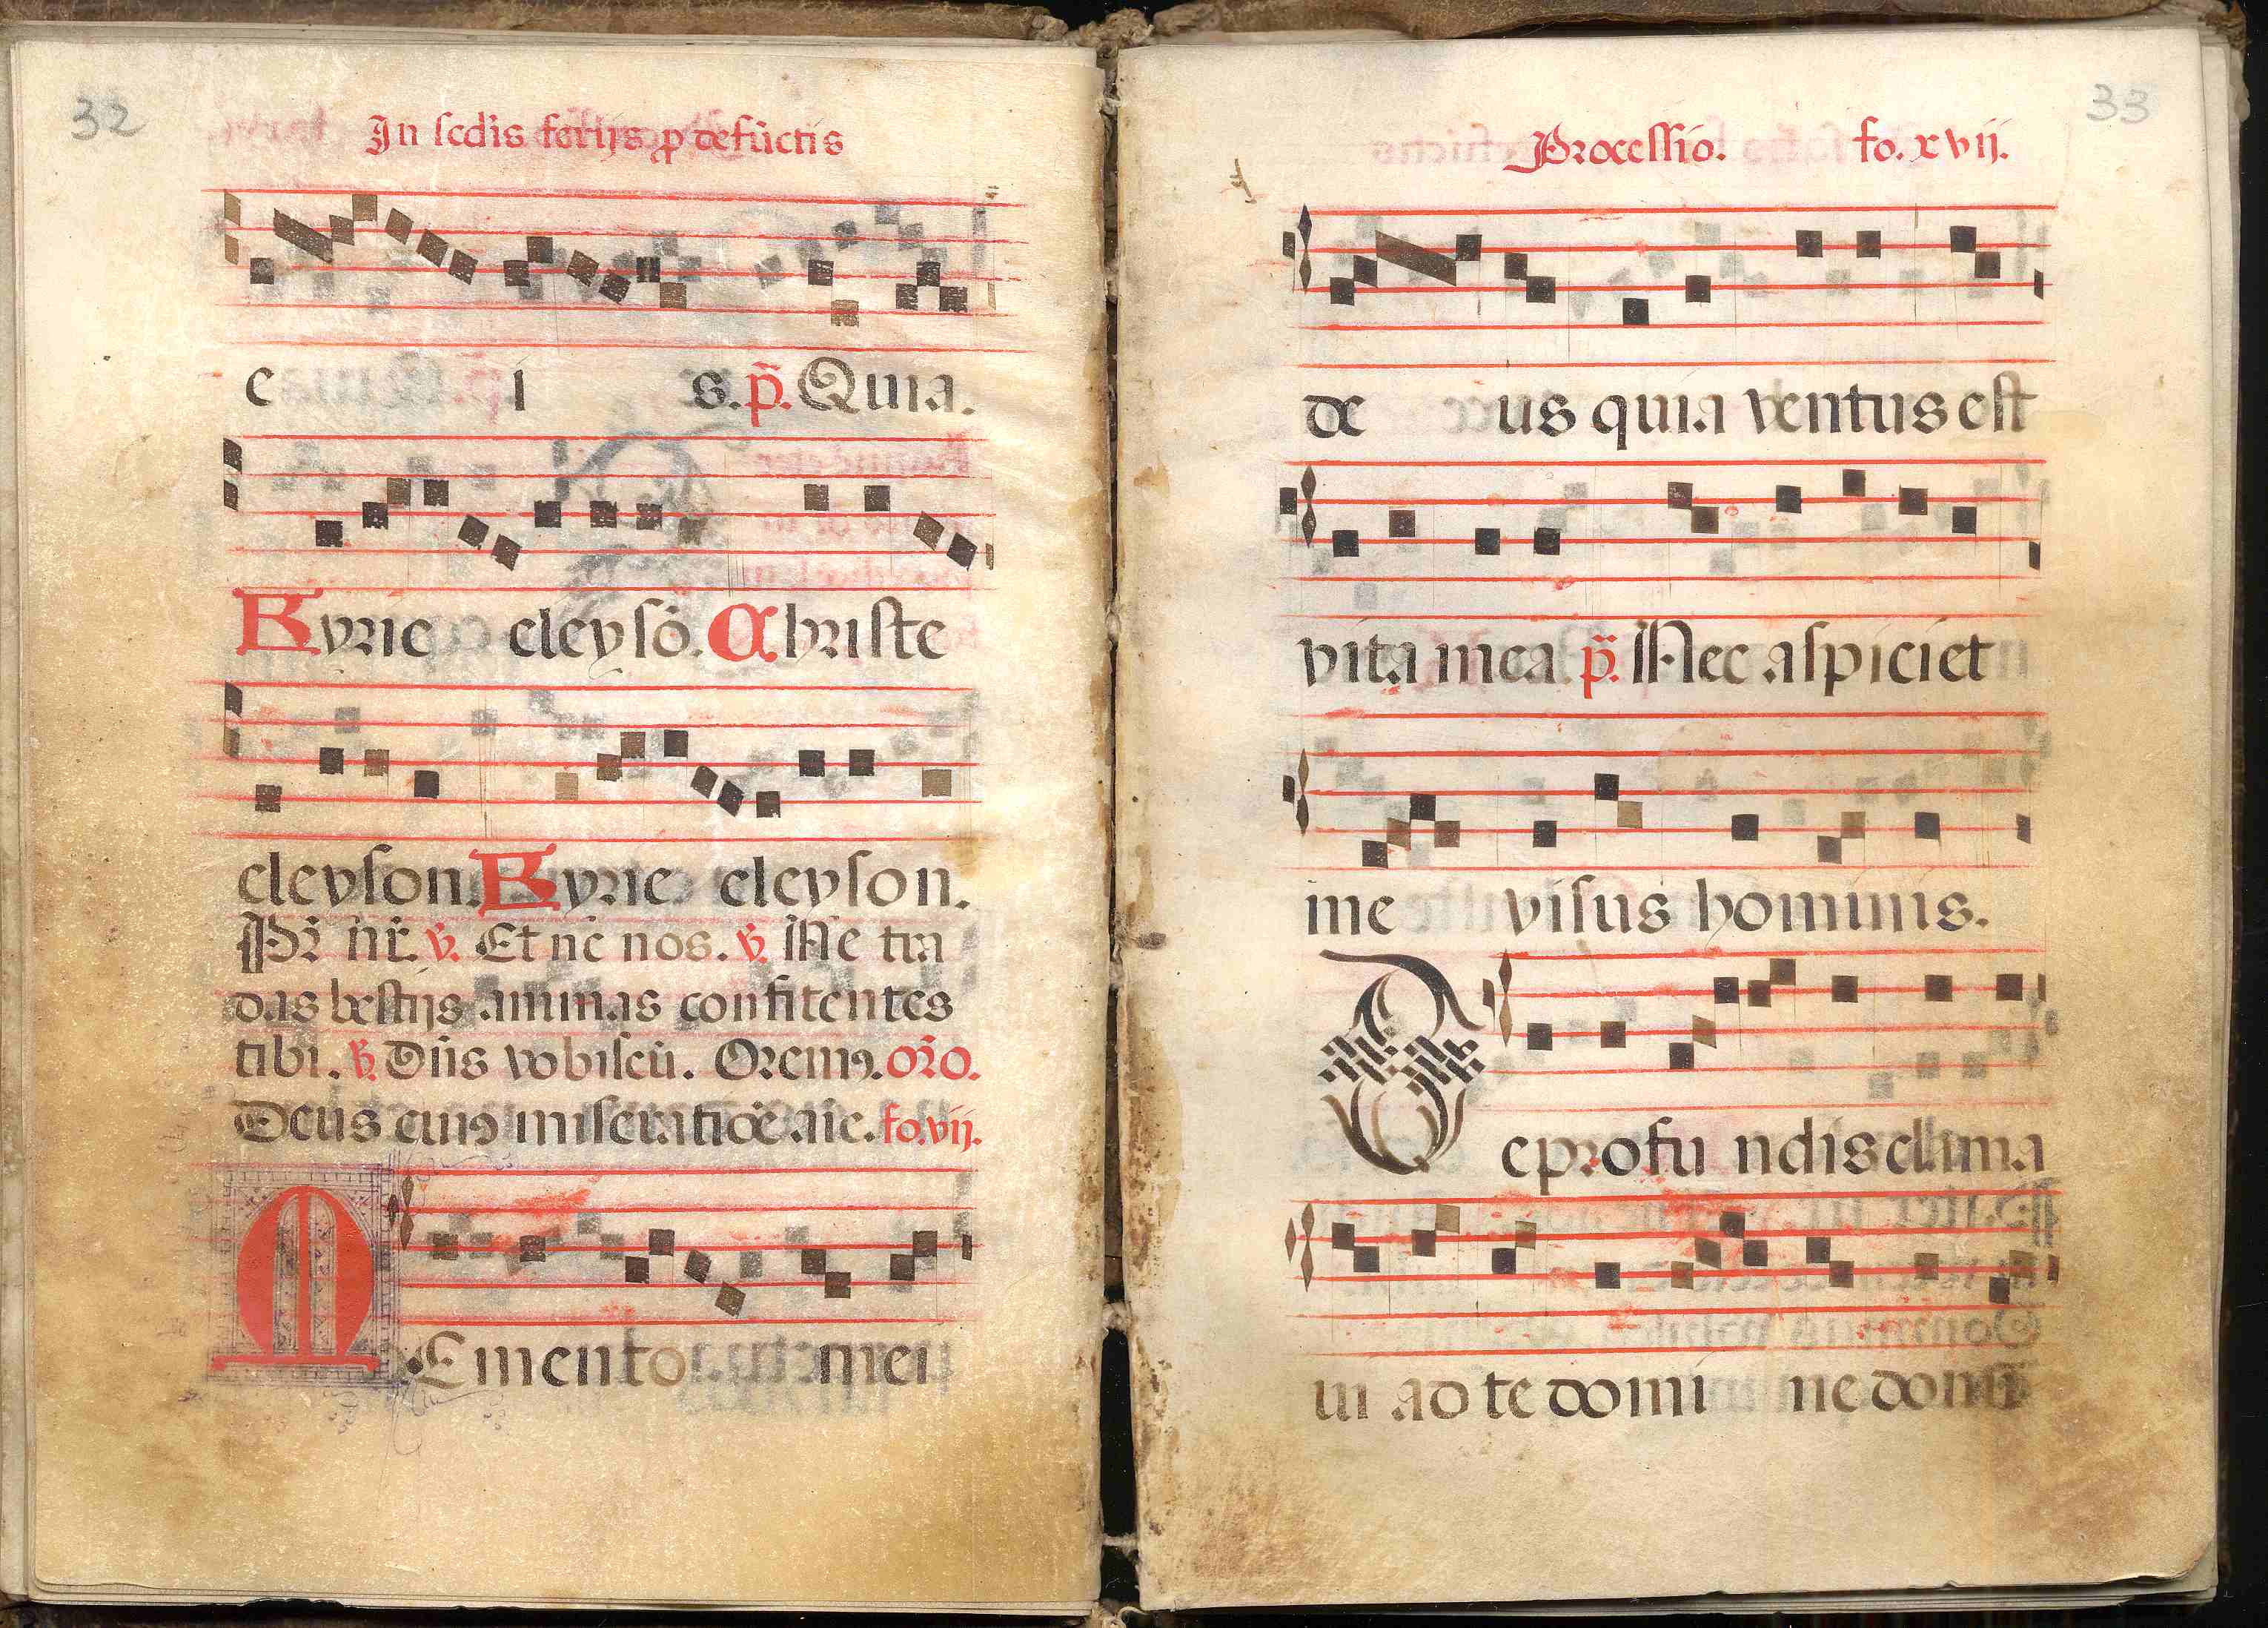 32
In scd̃is ferijs ꝓ defũctis
e i s. p̃. Quia.
Kyrie eleysõ. Christe
eleyson. Kyrie eleyson.
Pr̃ nr̃. ℣. Et ne nos. ℣. Ne tra
das bestijs animas confitentes
tibi. ℣. Dñs vobiscũ. Oremꝰ. or̃o.
Deus cuiꝰ miseratiõe aĩe. fo. vij.
MEmento mei
33
Processio. fo. xvij.
de us quia ventus est
vita mea p̃. Nec aspiciet
me visus hominis.
De profu ndis clama
ui ad te domi ne domi